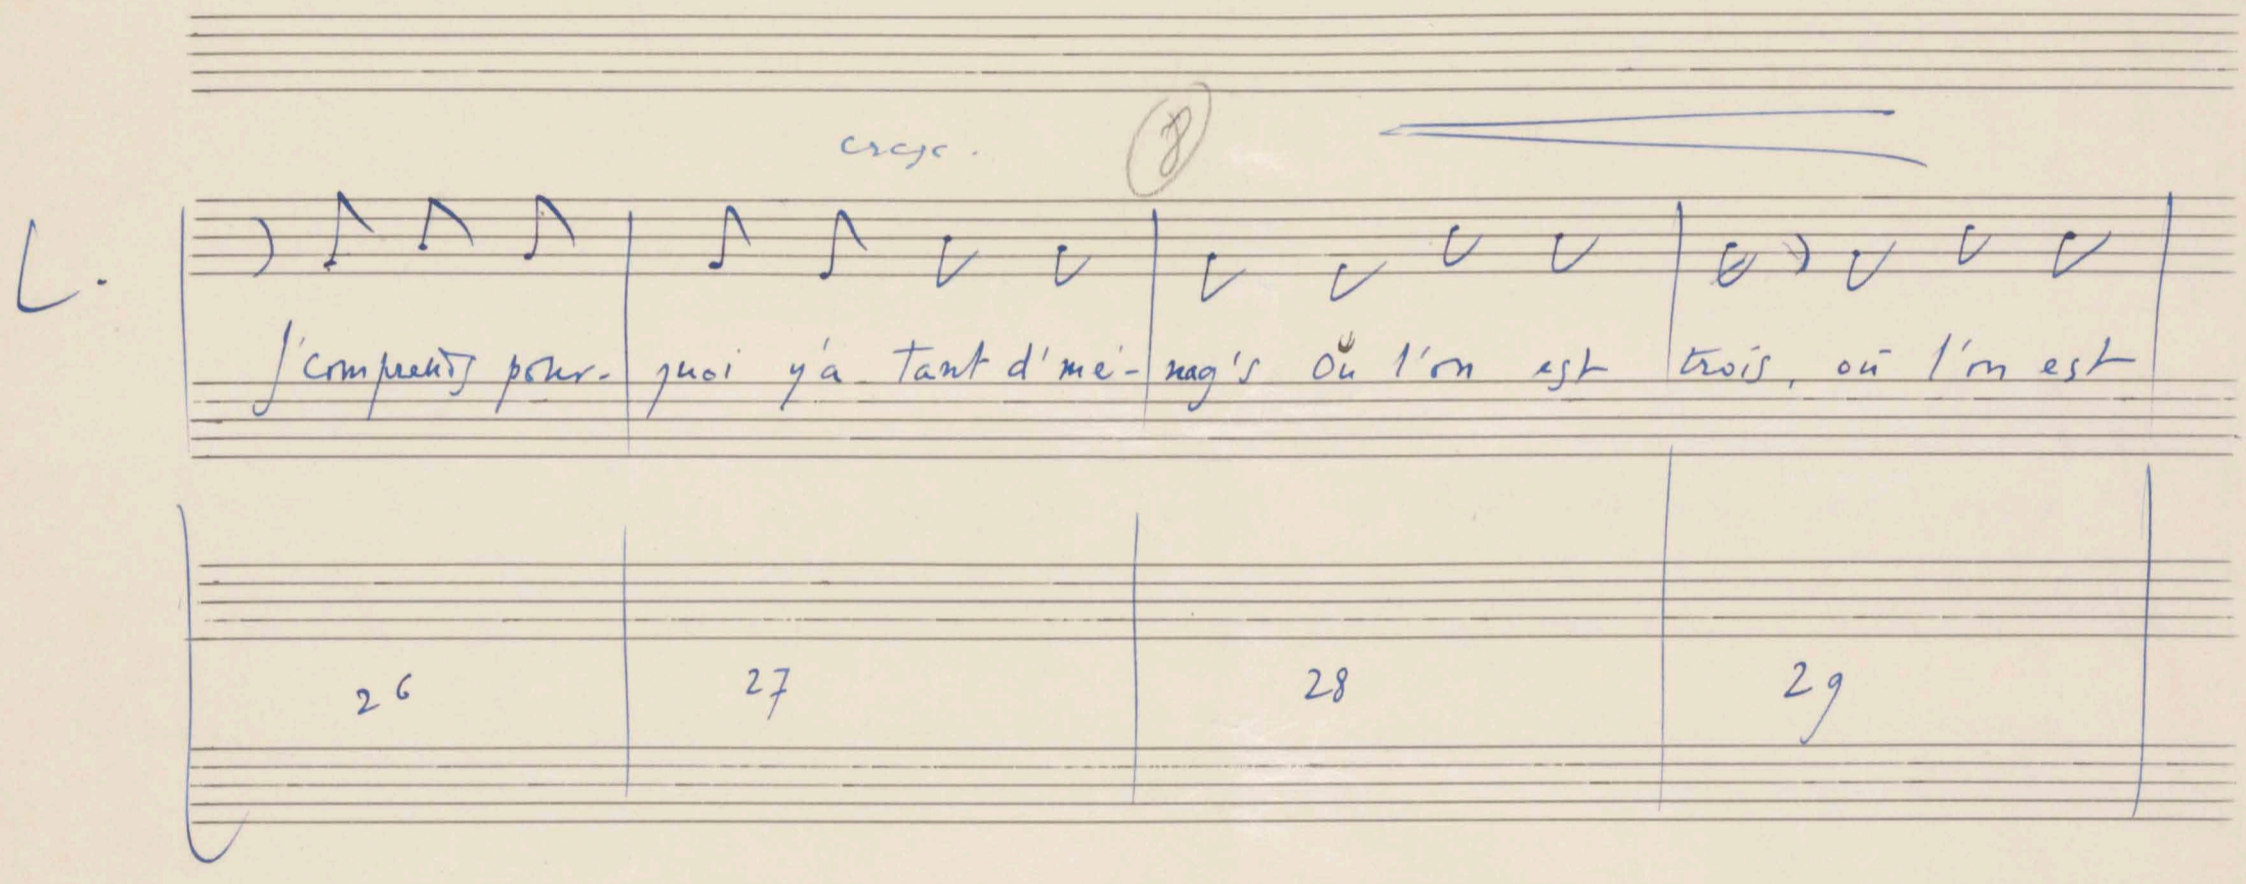 cresc.
8
L.
J'comprends pour- quoi y'a tant d'mé- nag's où l'on est trois, où l'on est
26 27 28 29